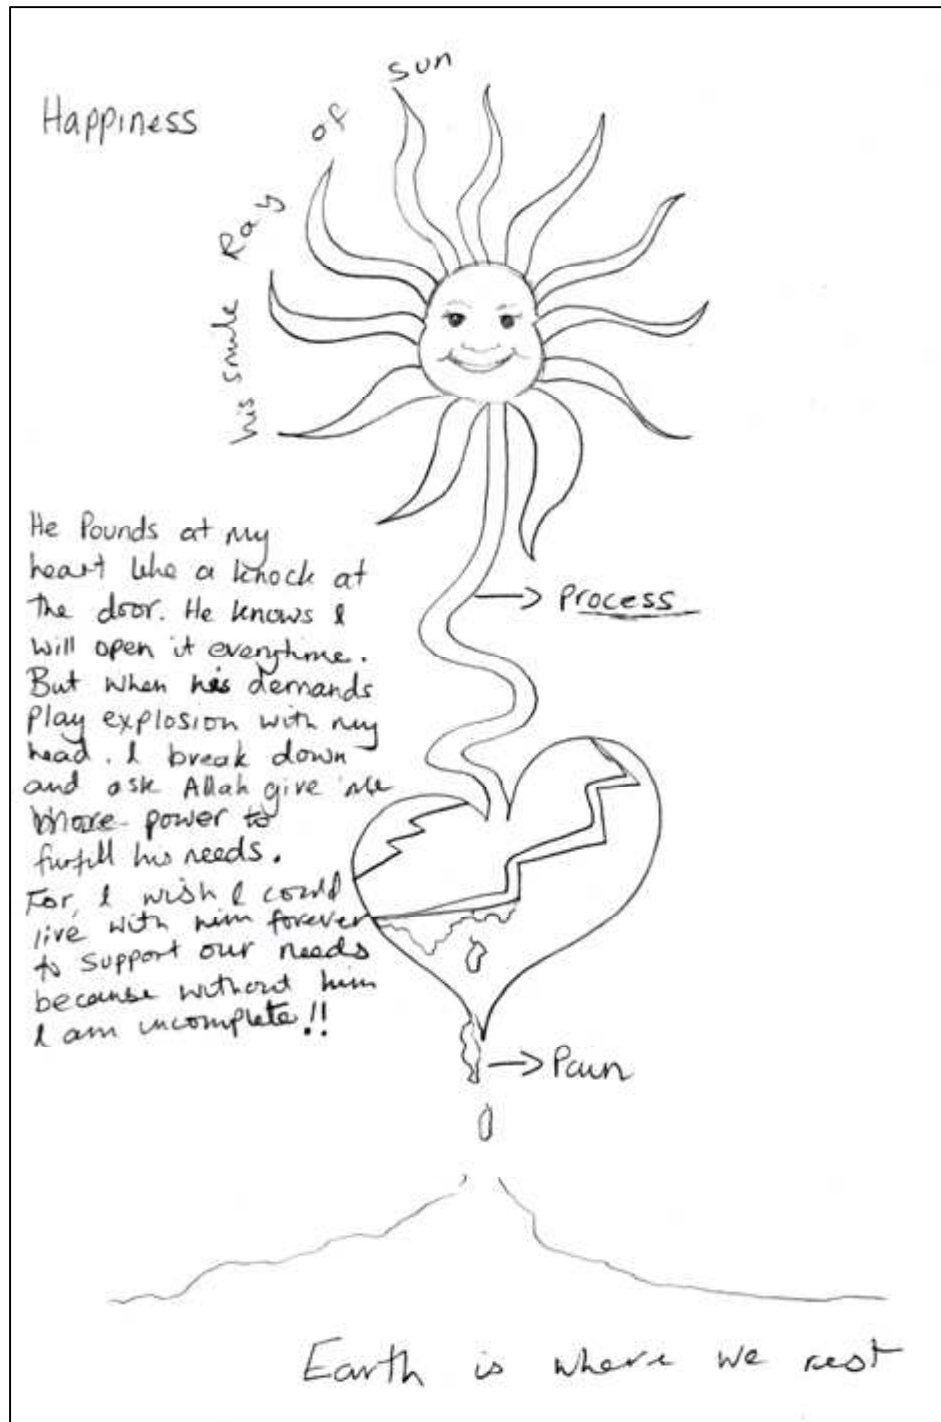 Happiness
his smile Ray of sun
He Pounds at my
heart like a knock at
the door. He knows I
will open it everytime.
But when his demands
play explosion with my
head. I break down
and ask Allah give me
more power to
furfill his needs.
For, I wish I could
live with him forever
to support our needs
because without him
I am incomplete!!
→ Process
→ Pain
Earth is where we rest